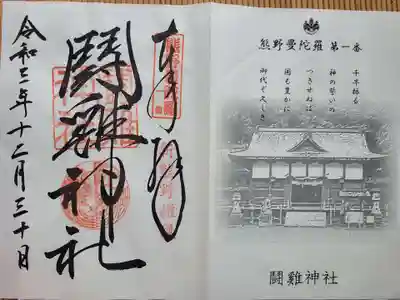 熊野曼陀羅 第一番
千早振る
神の誓いの
つきせねば
国も豊かに
御代ぞ久しき
闘雞神社
奉拝
鬪雞神社
令和三年十二月三十日